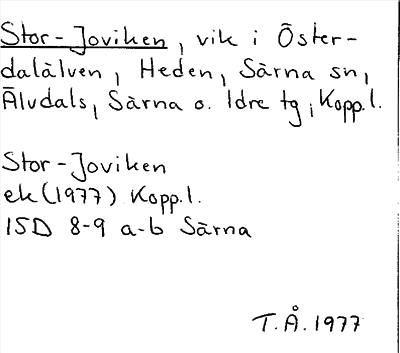 Stor-Joviken, vik i Öster-
dalälven, Heden, Särna sn,
Älvdals, Särna o. Idre tg, Kopp.l.
Stor-Joviken
ek (1977) Kopp.l.
15D 8-9 a-b Särna
T.Å. 1977